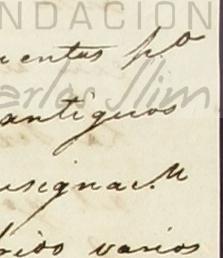 FUNDACION
uentas p.º
Carlos Slim
antiguos
nsignac.n
brido varios